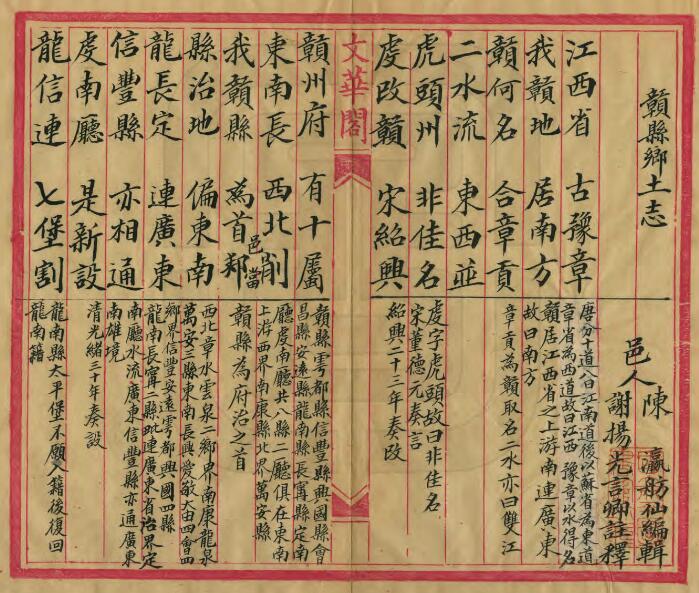 贛縣鄉土志
邑人陳瀛舫仙編輯
謝揚光言卿註釋
江西省 古豫章
唐分十道八曰江南道後以蘇省為東道
章省為西道故曰江西 豫章以水得名
我贛地 居南方
贛居江西省之上游南連廣東
故曰南方
贛何名 合章貢
章貢為贛取名二水亦曰雙江
二水流 東西並
虎頭州 非佳名
虔字虎頭故曰非佳名
宋董德元奏言
虔改贛 宋紹興
紹興二十三年奏改
文華閣
贛州府 有十屬
贛縣雩都縣信豐縣興國縣會
昌縣安遠縣龍南縣長寗縣定南
廳虔南廳共八縣二廳俱在東南
東南長 西北削
上游西界南康縣北界萬安縣
我贛縣 為首邑 鄰當
贛縣為府治之首
縣治地 偏東南
西北章水雲泉二鄉界南康龍泉
萬安三縣東南長興愛敏大由四會四
鄉界信豐安遠雩都興國四縣
龍長定 連廣東
龍南長寗二縣毗連廣東省治界定
南廳水流廣東信豐縣亦通廣東
信豐縣 亦相通
南雄境
虔南廳 是新設
清光緒三十年奏設
龍信連 七堡割
龍南縣太平堡不願入籍後復回
龍南籍